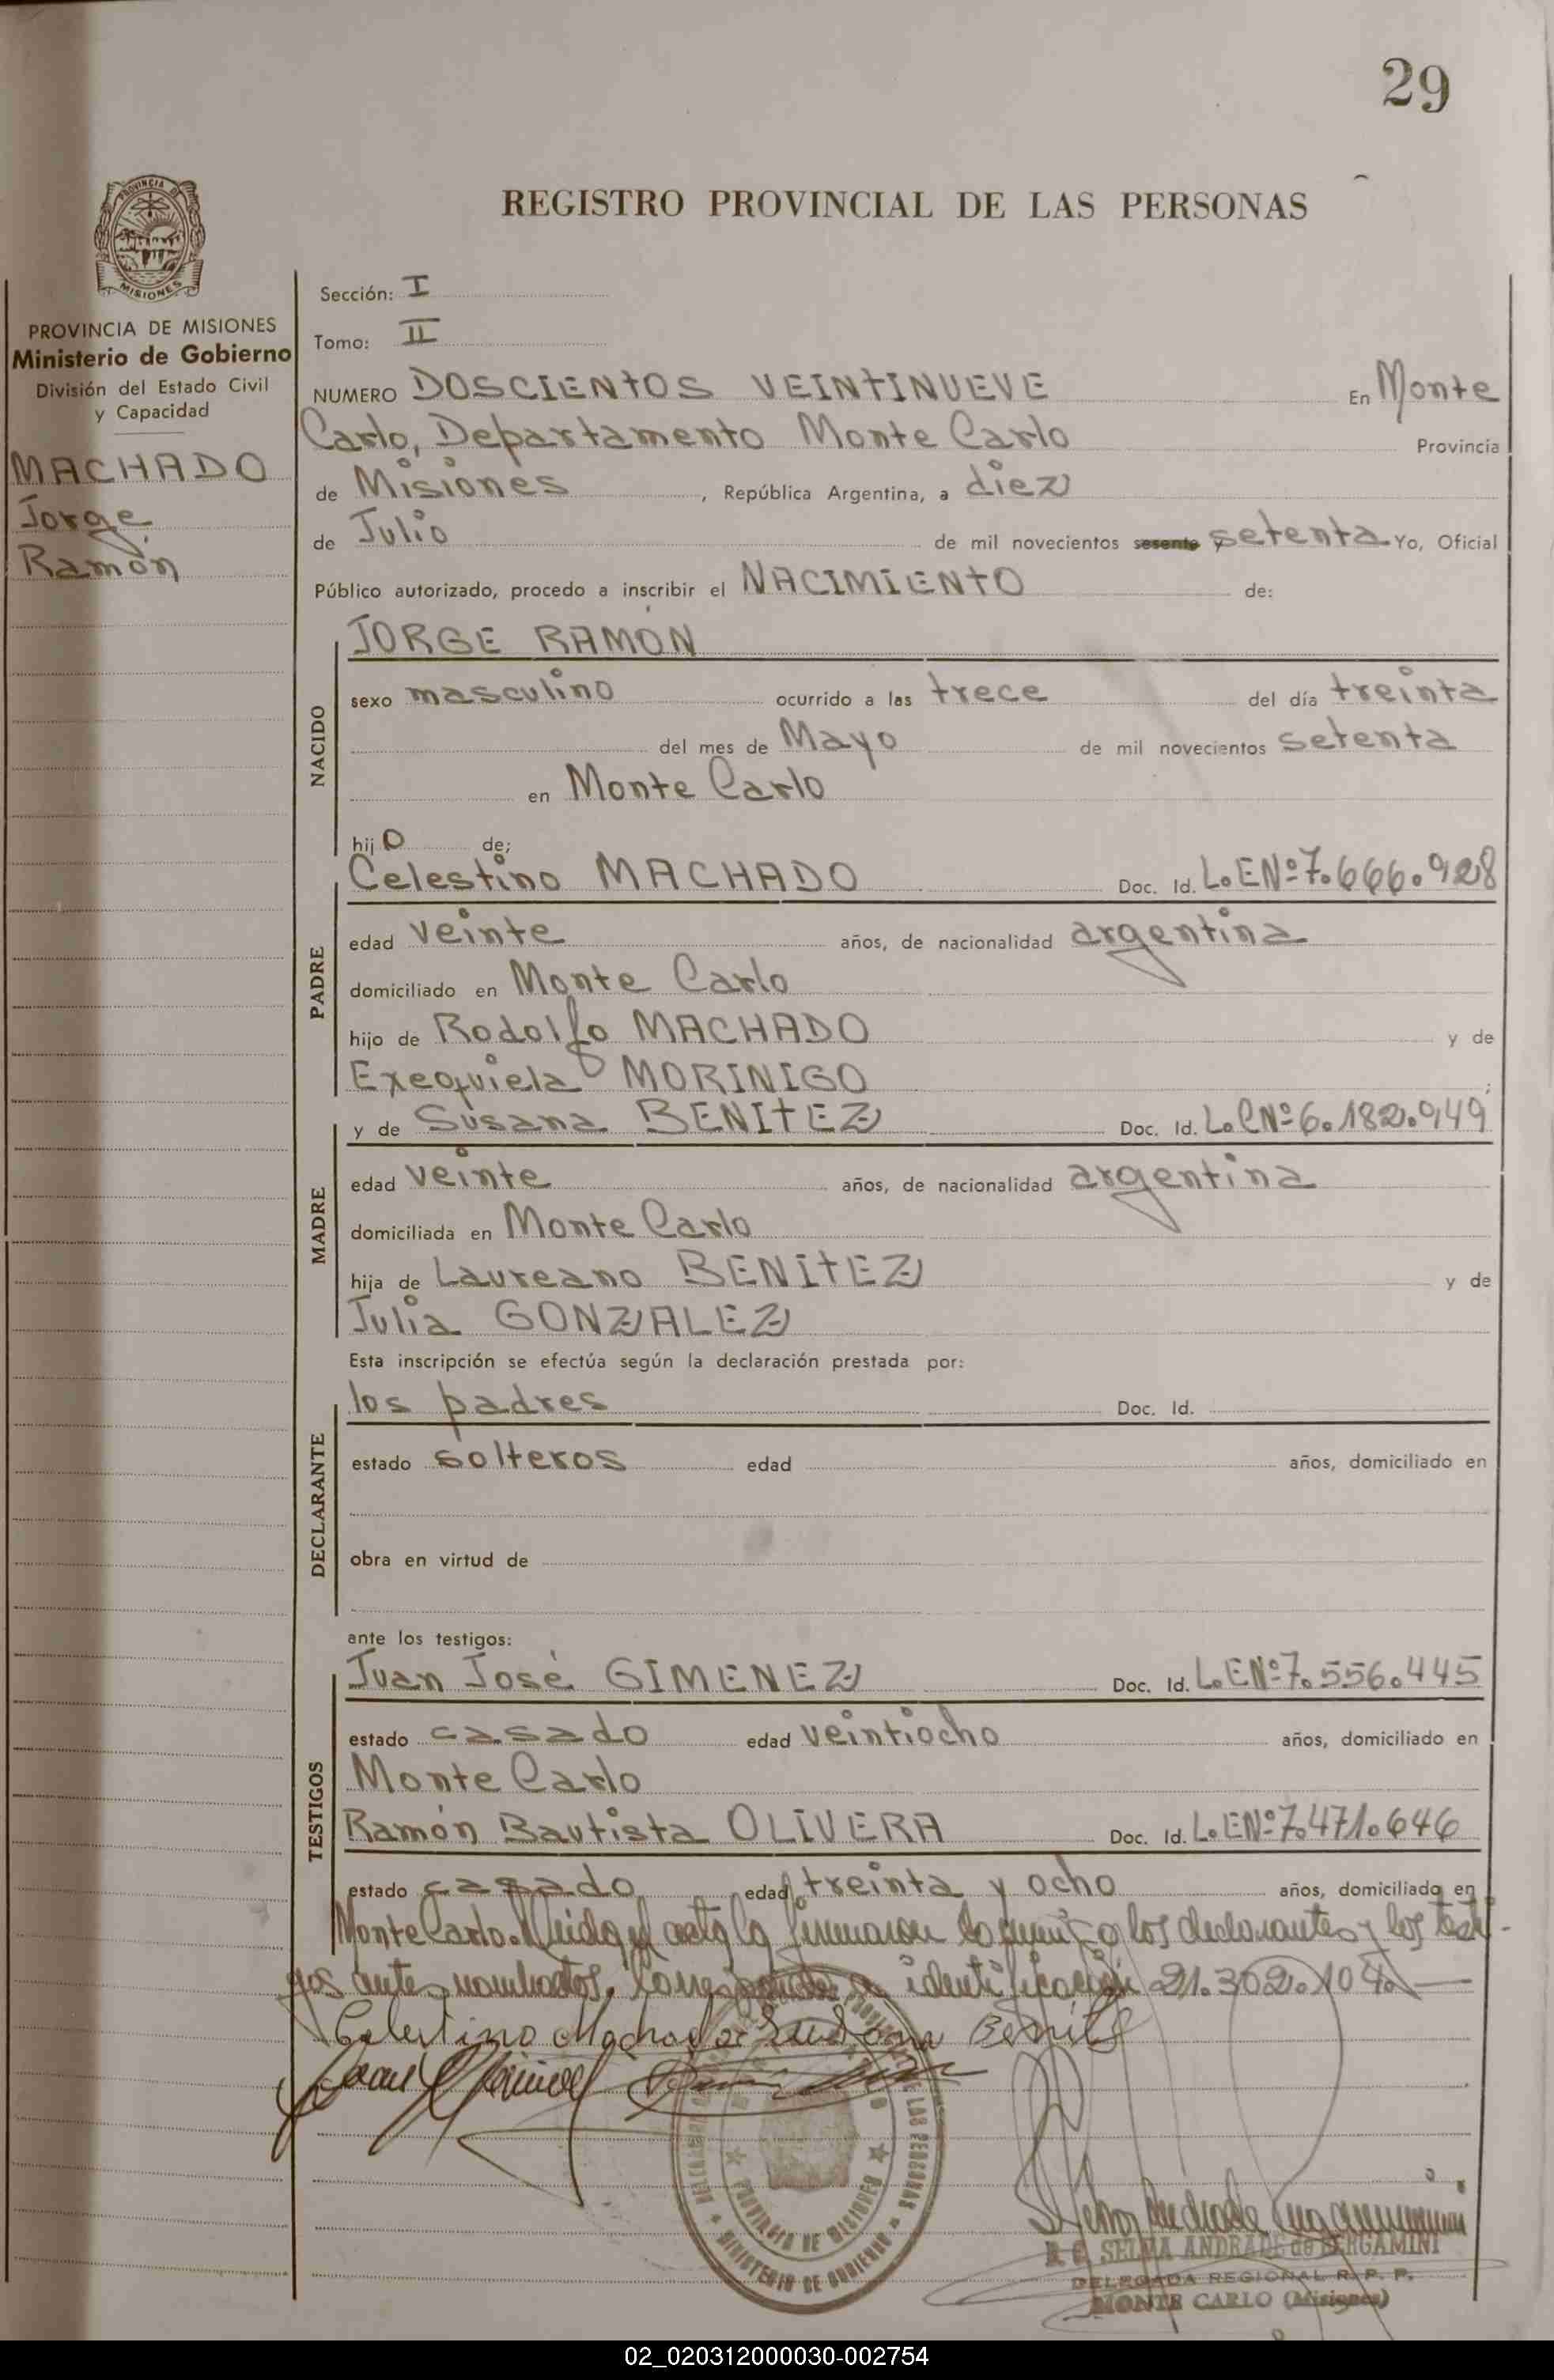 29
REGISTRO PROVINCIAL DE LAS PERSONAS
PROVINCIA DE
MISIONES
PROVINCIA DE MISIONES
Ministerio de Gobierno
División del Estado Civil
y Capacidad
MACHADO
Jorge
Ramón
Sección: I
Tomo: II
NUMERO DOSCIENTOS VEINTINUEVE En Monte
Carlo, Departamento Monte Carlo Provincia
de Misiones, República Argentina, a diez
de Julio de mil novecientos sesenta y setenta Yo, Oficial
Público autorizado, procedo a inscribir el NACIMIENTO de:
NACIDO
JORGE RAMÓN
sexo masculino ocurrido a las trece del día treinta
del mes de Mayo de mil novecientos setenta
en Monte Carlo
hijo de;
PADRE
Celestino MACHADO Doc. Id. L.E.Nº 7.666.928
edad veinte años, de nacionalidad argentina
domiciliado en Monte Carlo
hijo de Rodolfo MACHADO y de
Exequiela MORINIGO;
MADRE
y de Susana BENITEZ Doc. Id. L.C.Nº 6.182.949
edad veinte años, de nacionalidad argentina
domiciliada en Monte Carlo
hija de Laureano BENITEZ y de
Julia GONZALEZ
Esta inscripción se efectúa según la declaración prestada por:
DECLARANTE
los padres Doc. Id.
estado solteros edad años, domiciliado en
obra en virtud de
ante los testigos:
TESTIGOS
Juan José GIMENEZ Doc. Id. L.E.Nº 7.556.445
estado casado edad veintiocho años, domiciliado en
Monte Carlo
Ramón Bautista OLIVERA Doc. Id. L.E.Nº 7.471.646
estado casado edad treinta y ocho años, domiciliado en
Monte Carlo. Leida el acta la firmaron conmigo los declarantes y los testi-
gos antes nombrados. Corresponde a identificación 21.302.104.—
Celestino Machado Susana Benitez
PROVINCIA DE MISIONES
MINISTERIO DE GOBIERNO
SELMA ANDRADE de BERGAMINI
DELEGADA REGIONAL R. P. P.
MONTE CARLO (Misiones)
02_020312000030-002754